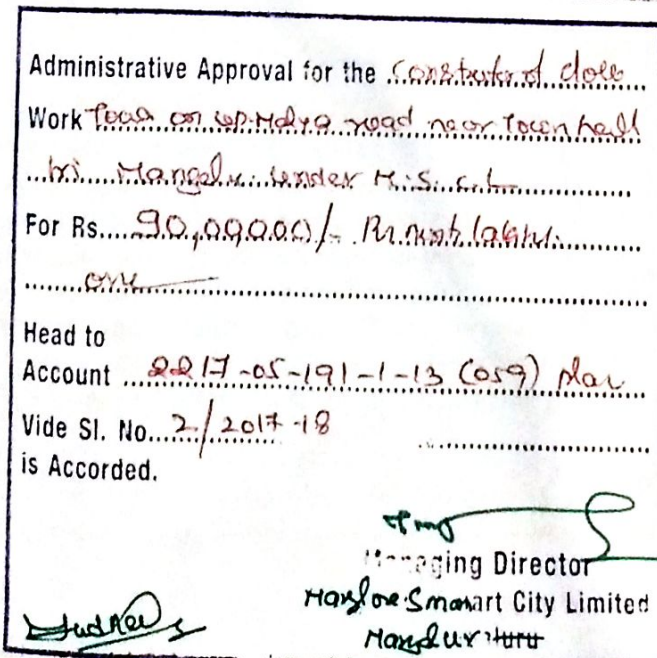 Administrative Approval for the Constructn of clock
Work Tower on road near Town hall
in Mangalu under M.S.C.L
For Rs. 90,00,000/- Rs. lakhs
only
Head to
Account 2217-05-191-1-13 (059)
Vide Sl. No. 2/2017-18
is Accorded.
Managing Director
Smart City Limited